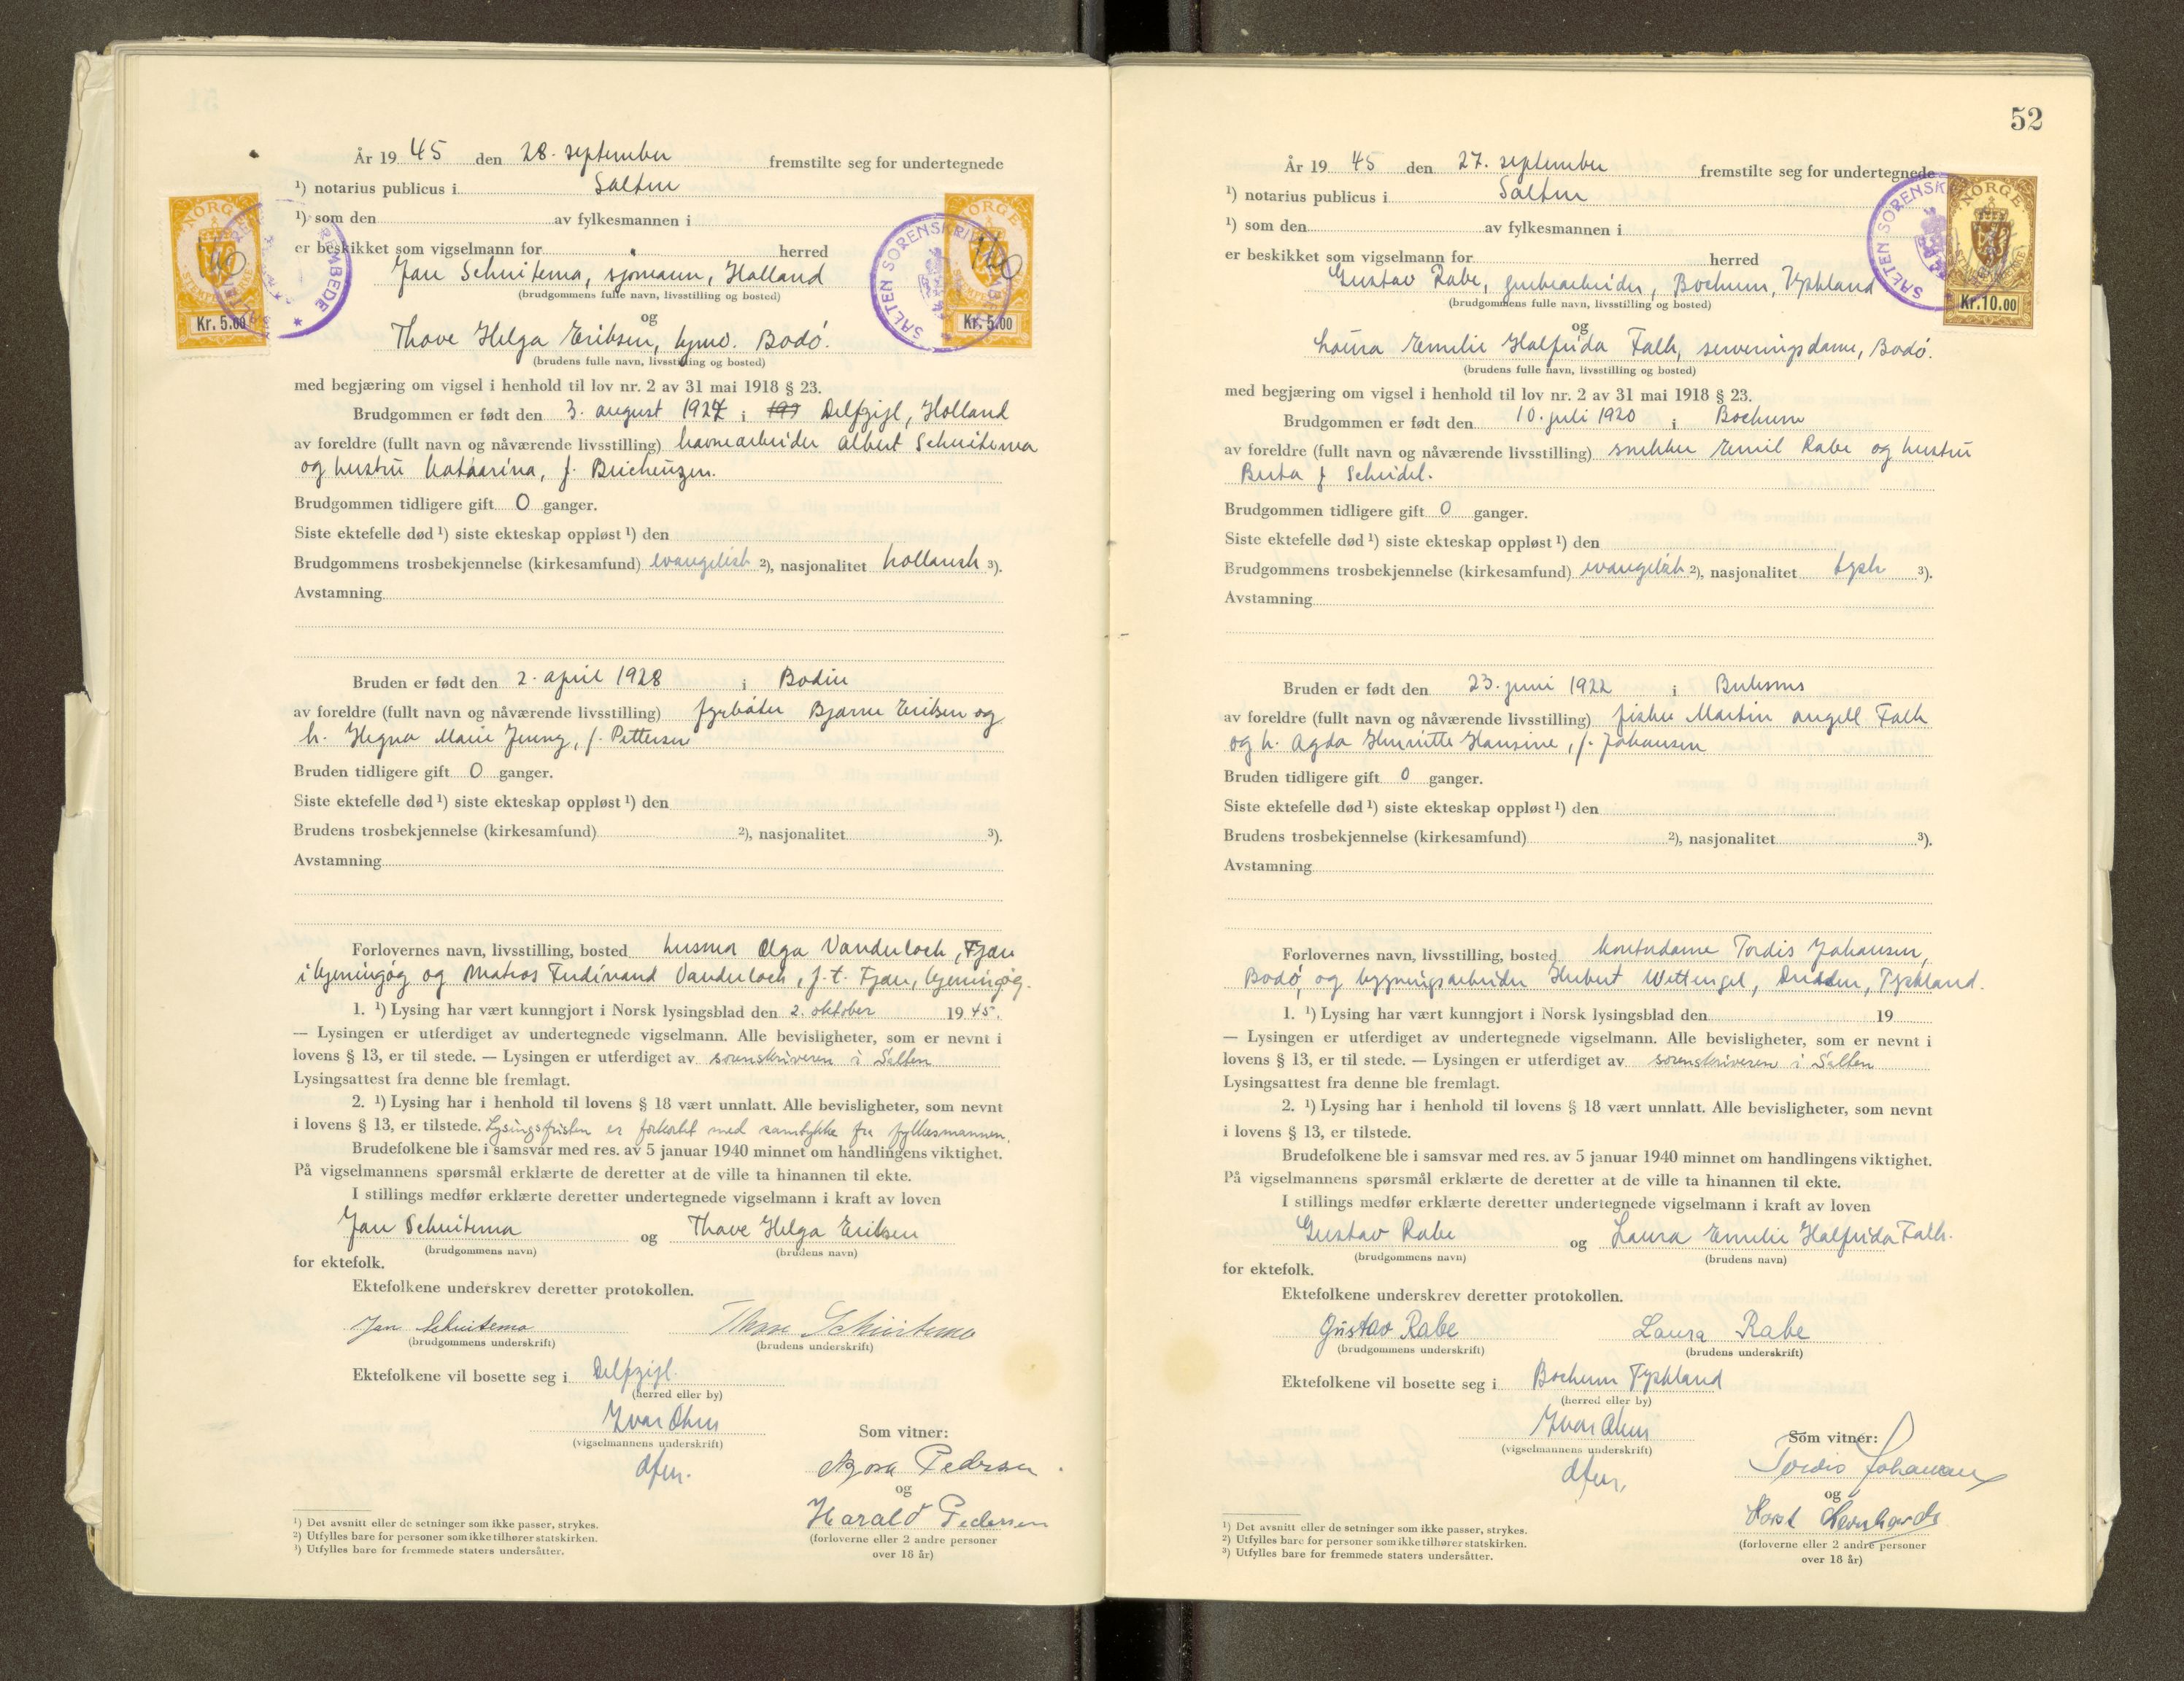 År 19 45 den 28. september fremstilte seg for undertegnede
¹) notarius publicus i Salten
¹) som den av fylkesmannen i
er beskikket som vigselmann for herred
Jan Schuitema, sjømann, Holland
(brudgommens fulle navn, livsstilling og bosted)
og
Thove Helga Eriksen, hjmv. Bodö.
(brudens fulle navn, livsstilling og bosted)
med begjæring om vigsel i henhold til lov nr. 2 av 31 mai 1918 § 23.
Brudgommen er født den 3. august 192 i Delfzijl, Holland
av foreldre (fullt navn og nåværende livsstilling) havnearbeider Albert Schuitema
og hustru Kataarina, f.
Brudgommen tidligere gift 0 ganger.
Siste ektefelle død ¹) siste ekteskap oppløst ¹) den
Brudgommens trosbekjennelse (kirkesamfund) evangelisk ²), nasjonalitet hollansk ³).
Avstamning
Bruden er født den 2. april 1928 i Bodin
av foreldre (fullt navn og nåværende livsstilling) fyrbøter Bjarne Eriksen og
h. Hegna Marie Jenny, f. Pettersen
Bruden tidligere gift 0 ganger.
Siste ektefelle død ¹) siste ekteskap oppløst ¹) den
Brudens trosbekjennelse (kirkesamfund) ²), nasjonalitet ³).
Avstamning
Forlovernes navn, livsstilling, bosted husmor Olga Vanderloch, Fjær
i Kjerringøy og matros Ferdinand Vanderloch, f.t. Fjær, Kjerringøy.
1. ¹) Lysing har vært kunngjort i Norsk lysingsblad den 2. oktober 19 45.
— Lysingen er utferdiget av undertegnede vigselmann. Alle bevisligheter, som er nevnt i
lovens § 13, er til stede. — Lysingen er utferdiget av sorenskriveren i Salten
Lysingsattest fra denne ble fremlagt.
2. ¹) Lysing har i henhold til lovens § 18 vært unnlatt. Alle bevisligheter, som nevnt
i lovens § 13, er tilstede. Lysingsfristen er forkortet med samtykke fra fylkesmannen.
Brudefolkene ble i samsvar med res. av 5 januar 1940 minnet om handlingens viktighet.
På vigselmannens spørsmål erklærte de deretter at de ville ta hinannen til ekte.
I stillings medfør erklærte deretter undertegnede vigselmann i kraft av loven
Jan Schuitema og Thove Helga Eriksen
(brudgommens navn) (brudens navn)
for ektefolk.
Ektefolkene underskrev deretter protokollen.
Jan Schuitema Thove Schuitema
(brudgommens underskrift) (brudens underskrift)
Ektefolkene vil bosette seg i Delfzijl.
(herred eller by)
(vigselmannens underskrift)
Som vitner:
Pedersen
og
Harald Pedersen
(forloverne eller 2 andre personer
over 18 år)
¹) Det avsnitt eller de setninger som ikke passer, strykes.
²) Utfylles bare for personer som ikke tilhører statskirken.
³) Utfylles bare for fremmede staters undersåtter.
NORGE
Kr. 5.00
SALTEN SORENSKRIVEREMBEDE
NORGE
Kr. 5.00
52
År 19 45 den 27. september fremstilte seg for undertegnede
¹) notarius publicus i Salten
¹) som den av fylkesmannen i
er beskikket som vigselmann for herred
Gustav Rabe, grubearbeider, Bochum, Tyskland
(brudgommens fulle navn, livsstilling og bosted)
og
Laura Emelie Halfrida Falk, serveringsdame, Bodö.
(brudens fulle navn, livsstilling og bosted)
med begjæring om vigsel i henhold til lov nr. 2 av 31 mai 1918 § 23.
Brudgommen er født den 10. juli 1920 i Bochum
av foreldre (fullt navn og nåværende livsstilling) snekker Emil Rabe og hustru
Berta f Scheidel.
Brudgommen tidligere gift 0 ganger.
Siste ektefelle død ¹) siste ekteskap oppløst ¹) den
Brudgommens trosbekjennelse (kirkesamfund) evangelisk ²), nasjonalitet tysk ³).
Avstamning
Bruden er født den 23. juni 1922 i
av foreldre (fullt navn og nåværende livsstilling) fisker Martin Angell Falk
og h. Agda Henriette Hansine, f. Johansen
Bruden tidligere gift 0 ganger.
Siste ektefelle død ¹) siste ekteskap oppløst ¹) den
Brudens trosbekjennelse (kirkesamfund) ²), nasjonalitet ³).
Avstamning
Forlovernes navn, livsstilling, bosted kontordame Tordis Johansen,
Bodö, og bygningsarbeider Herbert Wettengel, Dresden, Tyskland.
1. ¹) Lysing har vært kunngjort i Norsk lysingsblad den 19
— Lysingen er utferdiget av undertegnede vigselmann. Alle bevisligheter, som er nevnt i
lovens § 13, er til stede. — Lysingen er utferdiget av sorenskriveren i Salten
Lysingsattest fra denne ble fremlagt.
2. ¹) Lysing har i henhold til lovens § 18 vært unnlatt. Alle bevisligheter, som nevnt
i lovens § 13, er tilstede.
Brudefolkene ble i samsvar med res. av 5 januar 1940 minnet om handlingens viktighet.
På vigselmannens spørsmål erklærte de deretter at de ville ta hinannen til ekte.
I stillings medfør erklærte deretter undertegnede vigselmann i kraft av loven
Gustav Rabe og Laura Emelie Halfrida Falk.
(brudgommens navn) (brudens navn)
for ektefolk.
Ektefolkene underskrev deretter protokollen.
Gustav Rabe Laura Rabe
(brudgommens underskrift) (brudens underskrift)
Ektefolkene vil bosette seg i Bochum Tyskland
(herred eller by)
(vigselmannens underskrift)
Som vitner:
Tordis Johansen
og
Horst
(forloverne eller 2 andre personer
over 18 år)
¹) Det avsnitt eller de setninger som ikke passer, strykes.
²) Utfylles bare for personer som ikke tilhører statskirken.
³) Utfylles bare for fremmede staters undersåtter.
NORGE
Kr. 10.00